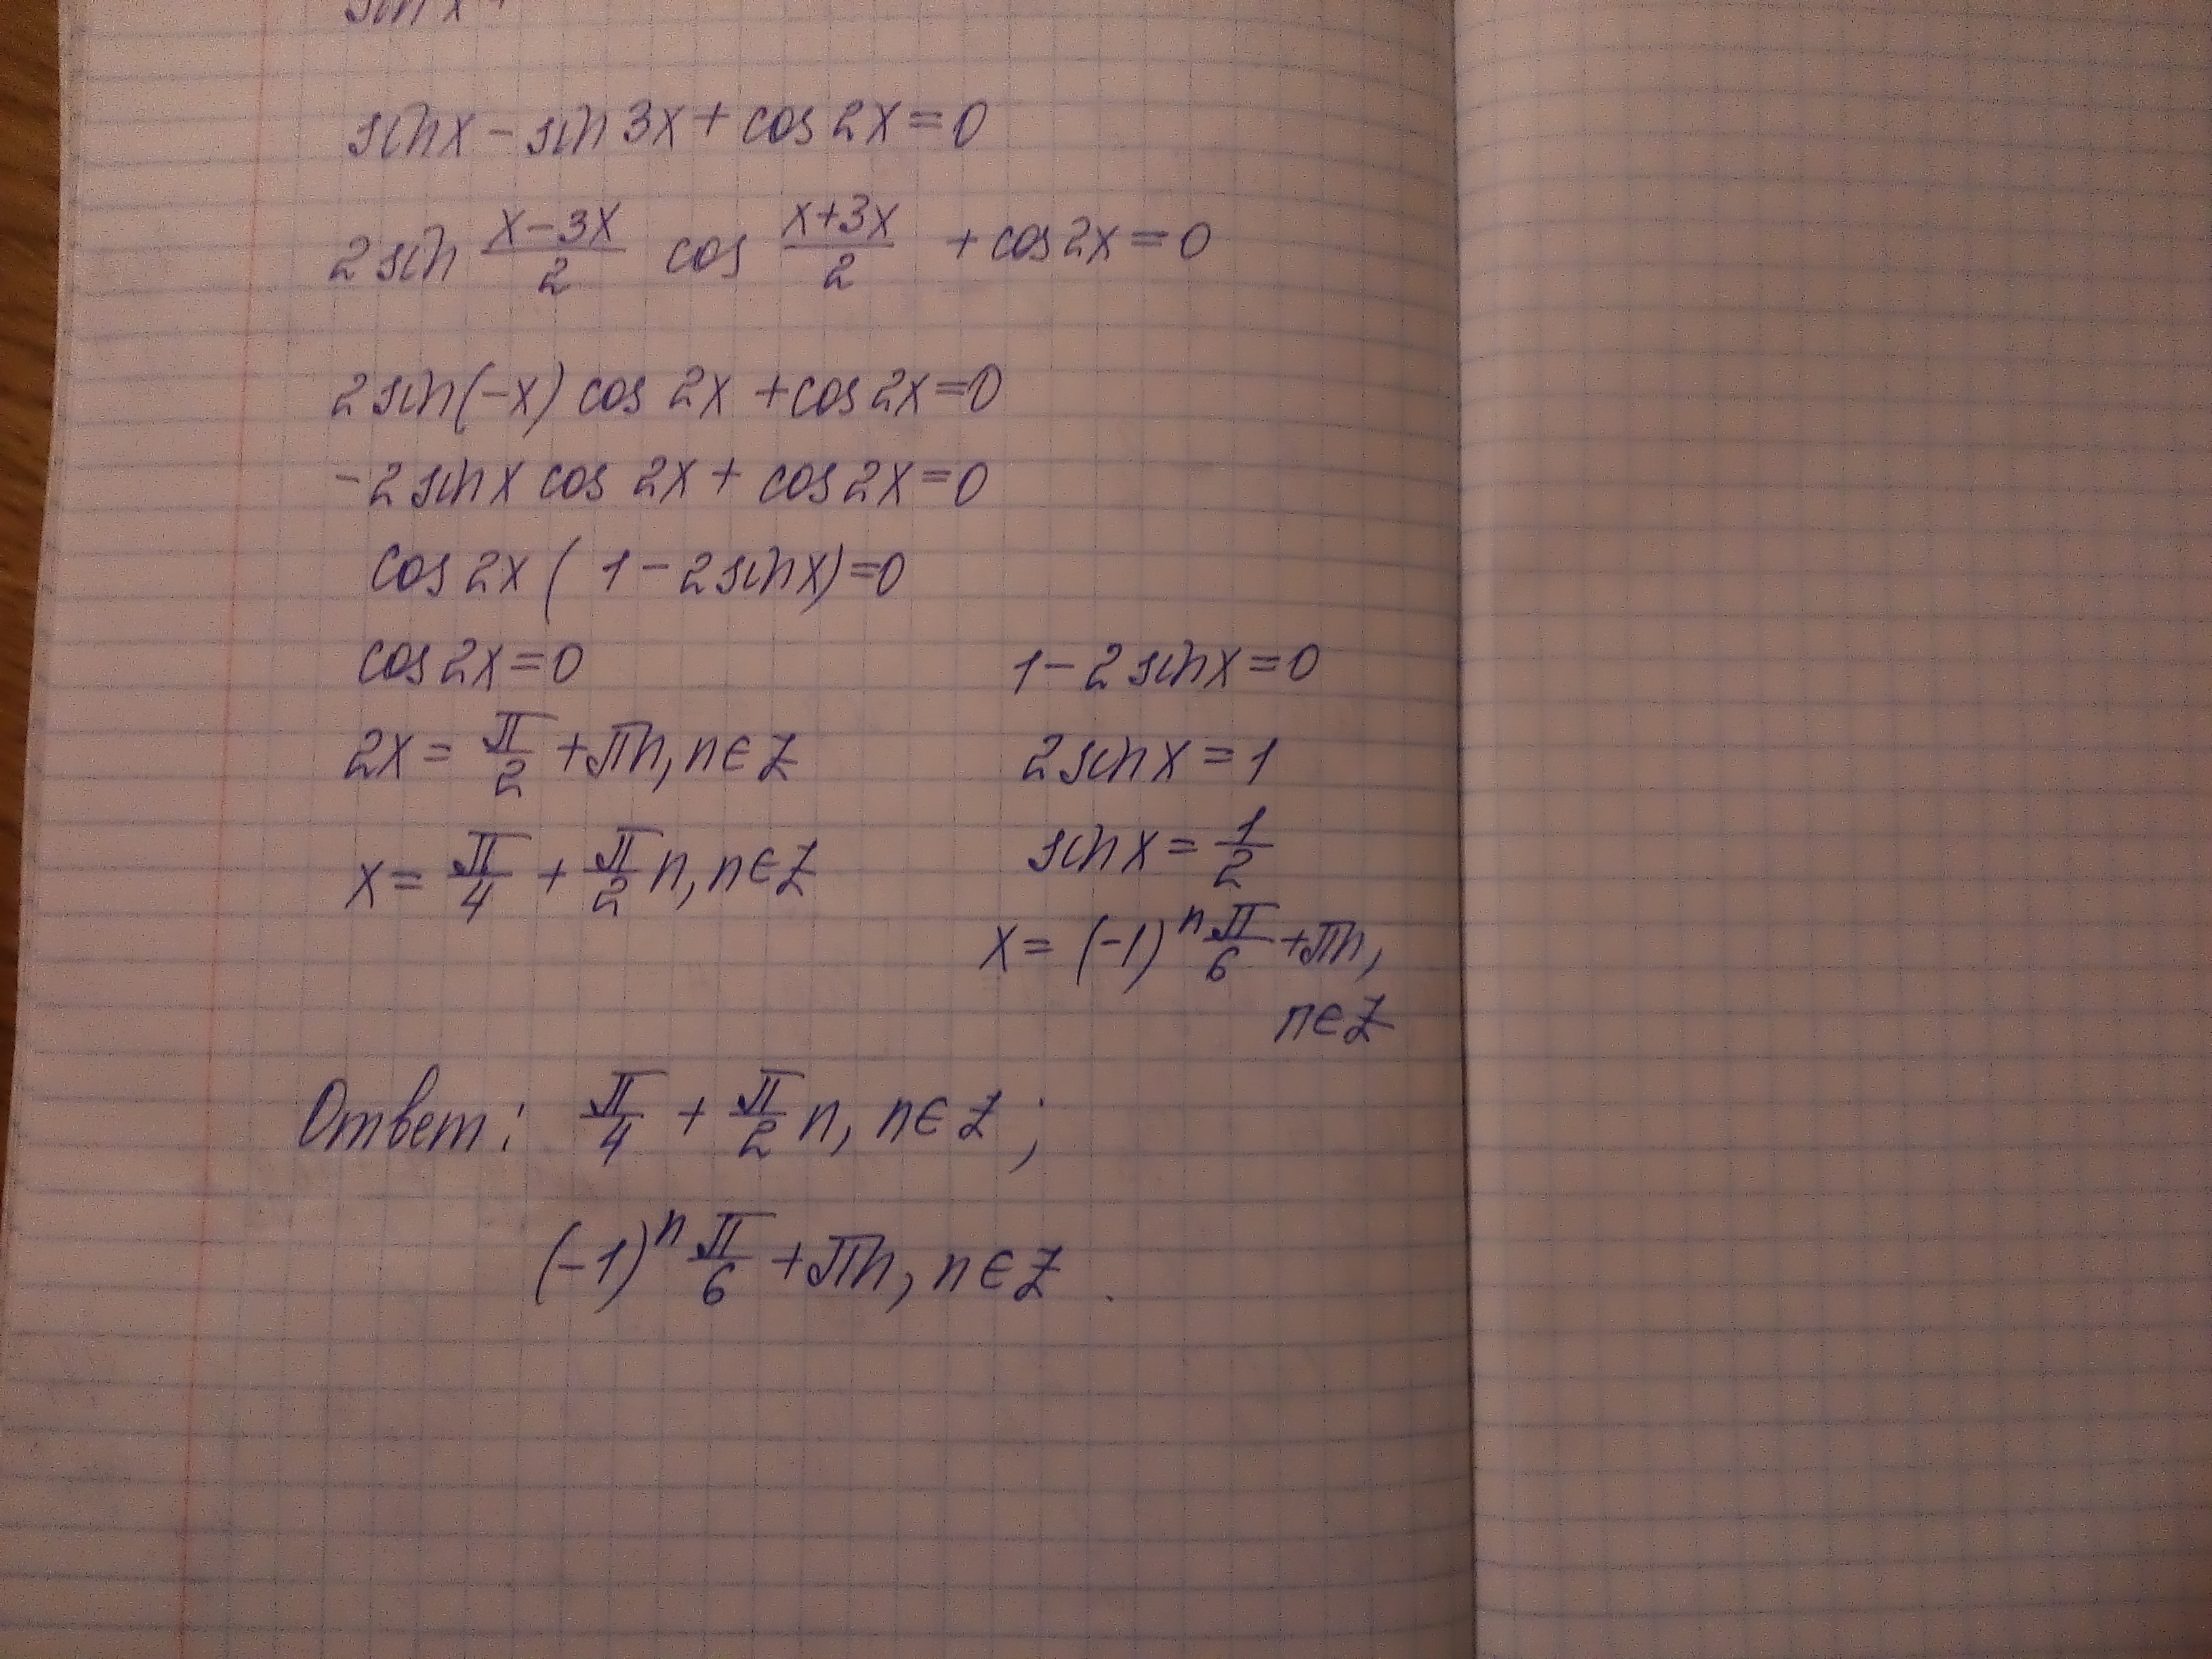 sin x - sin 3x + cos 2x = 0
2 sin (x-3x)/2 cos (x+3x)/2 + cos 2x = 0
2 sin(-x) cos 2x + cos 2x = 0
-2 sin x cos 2x + cos 2x = 0
cos 2x (1 - 2 sin x) = 0
cos 2x = 0
2x = π/2 + πn, n ∈ Z
x = π/4 + π/2 n, n ∈ Z
1 - 2 sin x = 0
2 sin x = 1
sin x = 1/2
x = (-1)^n π/6 + πn,
n ∈ Z
Ответ: π/4 + π/2 n, n ∈ Z;
(-1)^n π/6 + πn, n ∈ Z.